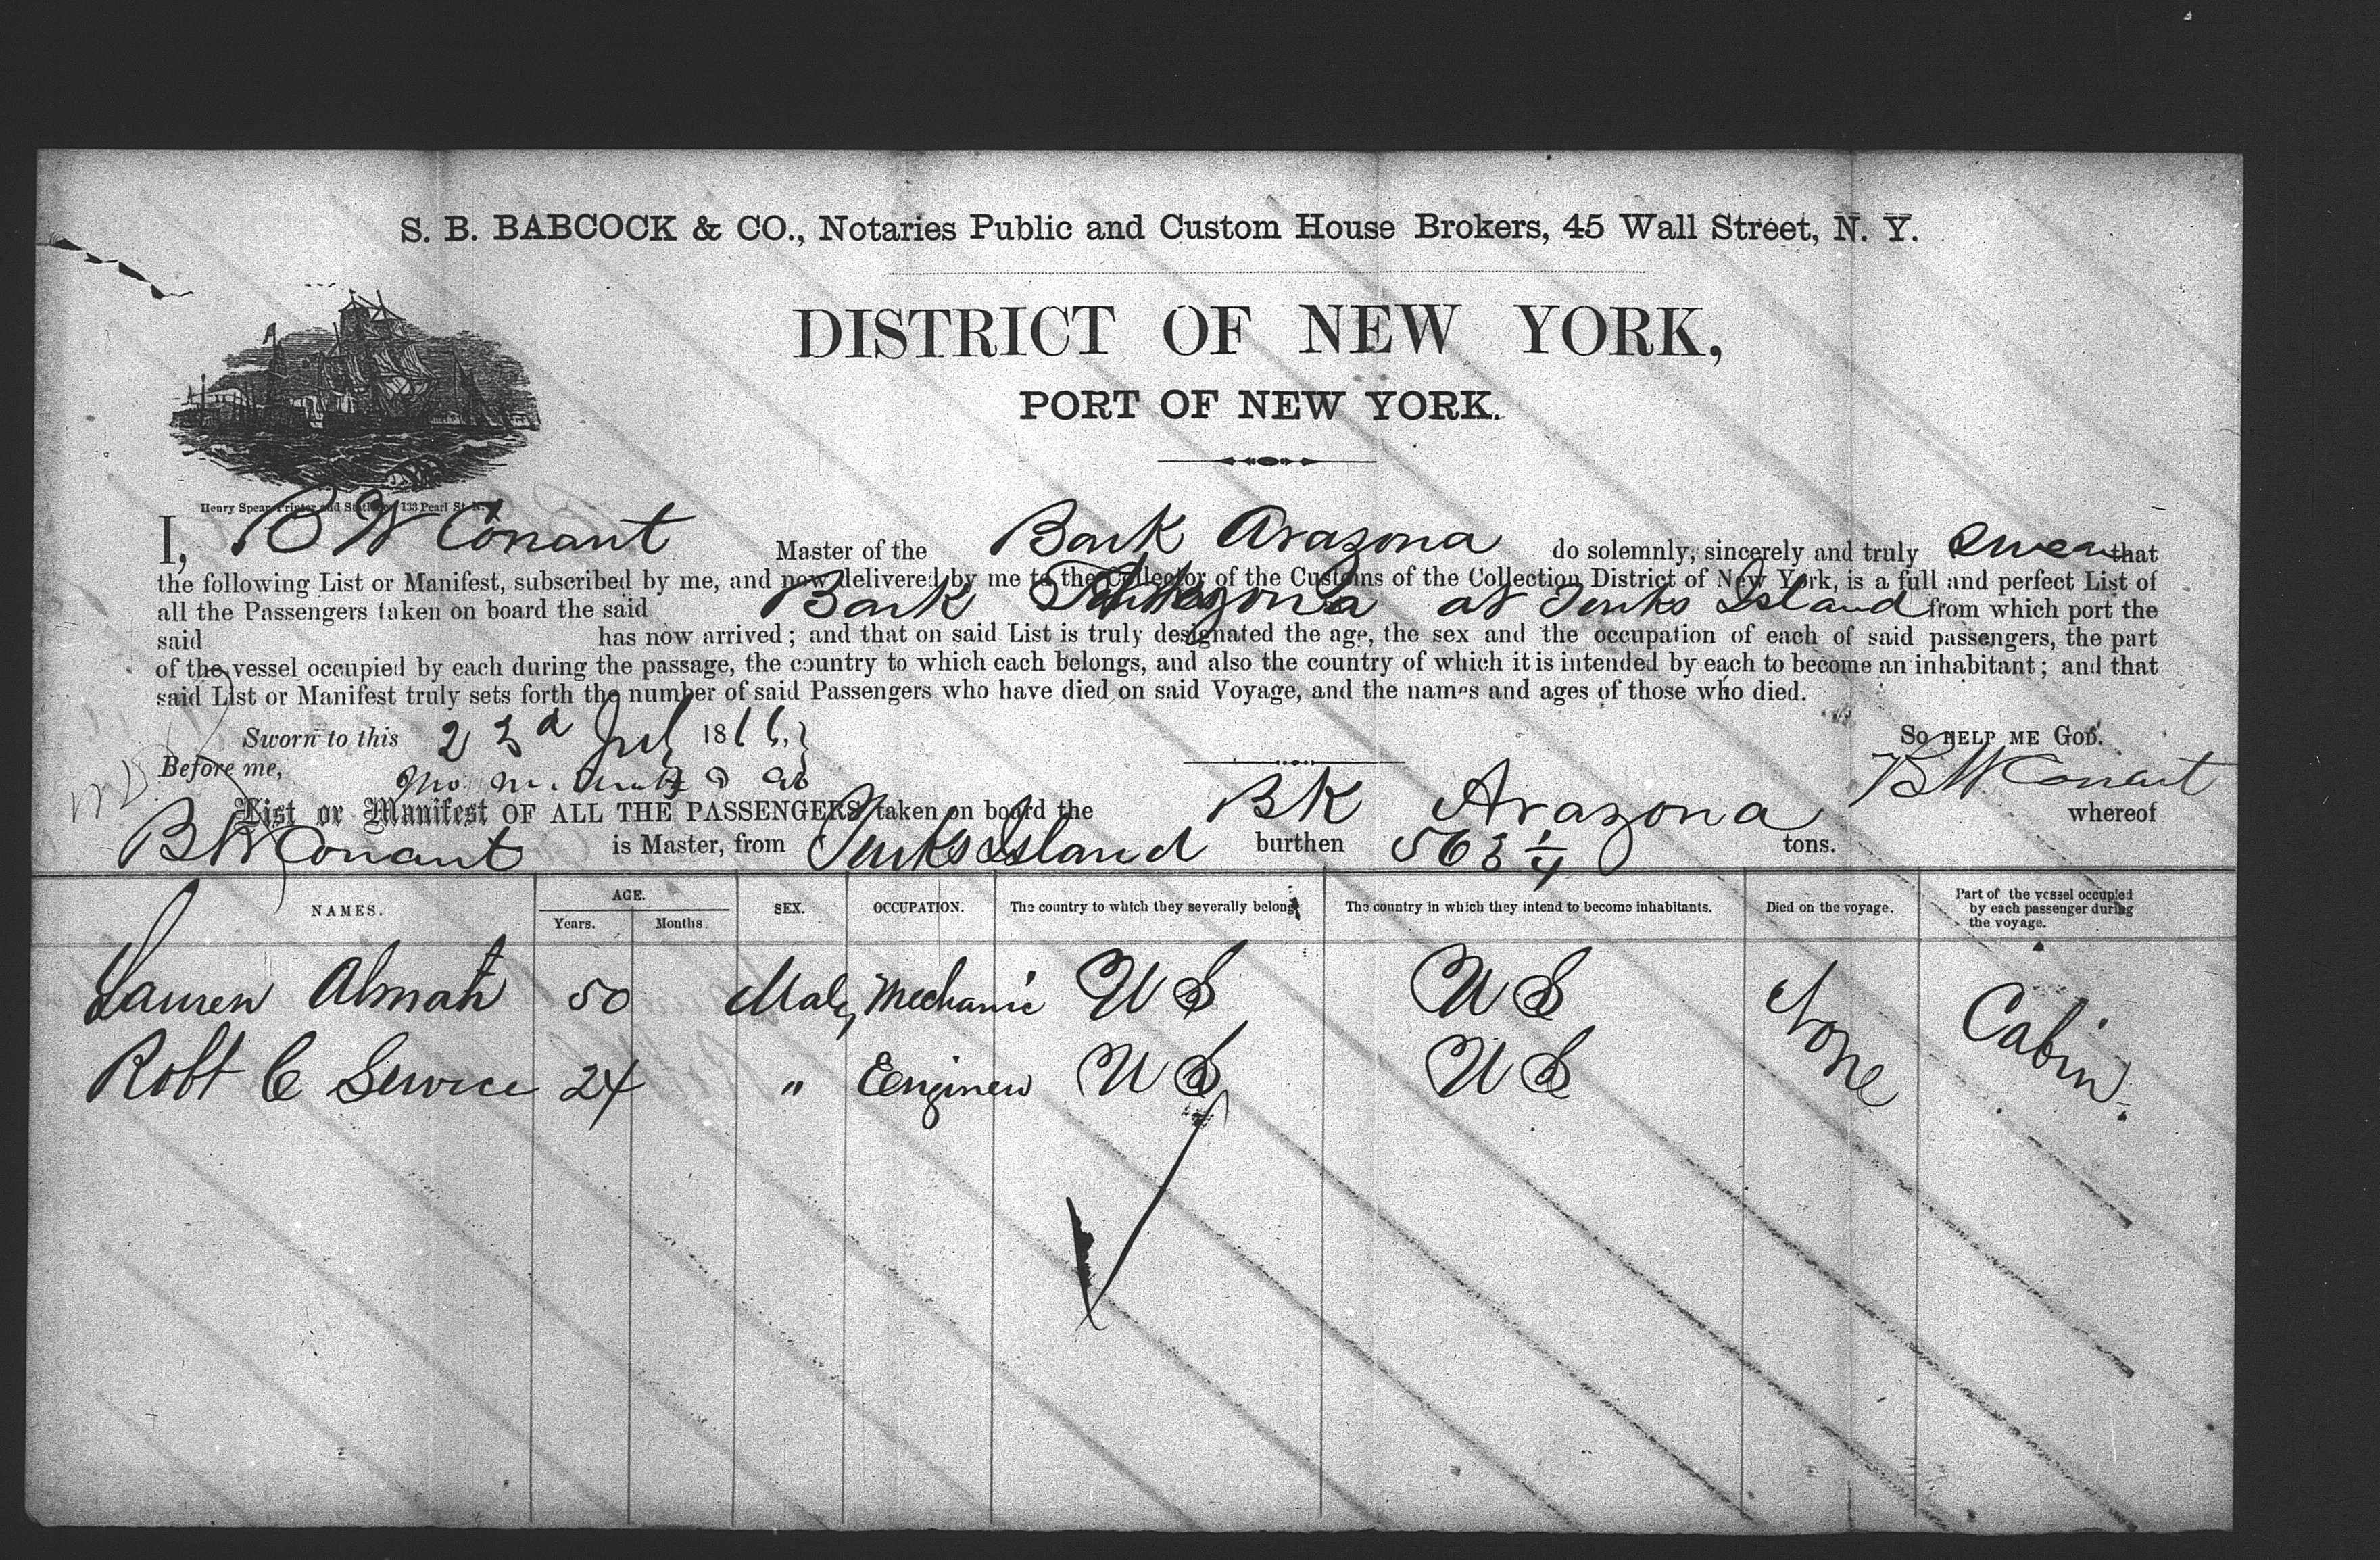 S. B. BABCOCK & CO., Notaries Public and Custom House Brokers, 45 Wall Street, N. Y.
DISTRICT OF NEW YORK,
PORT OF NEW YORK.
Henry Spear, Printer and Stationer, 133 Pearl St. N.Y.
I, B W Conant Master of the Bark Arazona do solemnly, sincerely and truly swear that
the following List or Manifest, subscribed by me, and now delivered by me to the Collector of the Customs of the Collection District of New York, is a full and perfect List of
all the Passengers taken on board the said Bark at Turks Island from which port the
said has now arrived; and that on said List is truly designated the age, the sex and the occupation of each of said passengers, the part
of the vessel occupied by each during the passage, the country to which each belongs, and also the country of which it is intended by each to become an inhabitant; and that
said List or Manifest truly sets forth the number of said Passengers who have died on said Voyage, and the names and ages of those who died.
Sworn to this 23d July 1866, So HELP ME GOD.
Before me, B W Conant
List or Manifest OF ALL THE PASSENGERS taken on board the BK Arazona whereof
B W Conant is Master, from Turks Island burthen 563 1/4 tons.
NAMES. AGE. Years. Months. SEX. OCCUPATION. The country to which they severally belong. The country in which they intend to become inhabitants. Died on the voyage. Part of the vessel occupied by each passenger during the voyage.
Lauren 50 Male, Mechanic U S U S None Cabin.
Robt C Service 24 " Eenginew U S U S